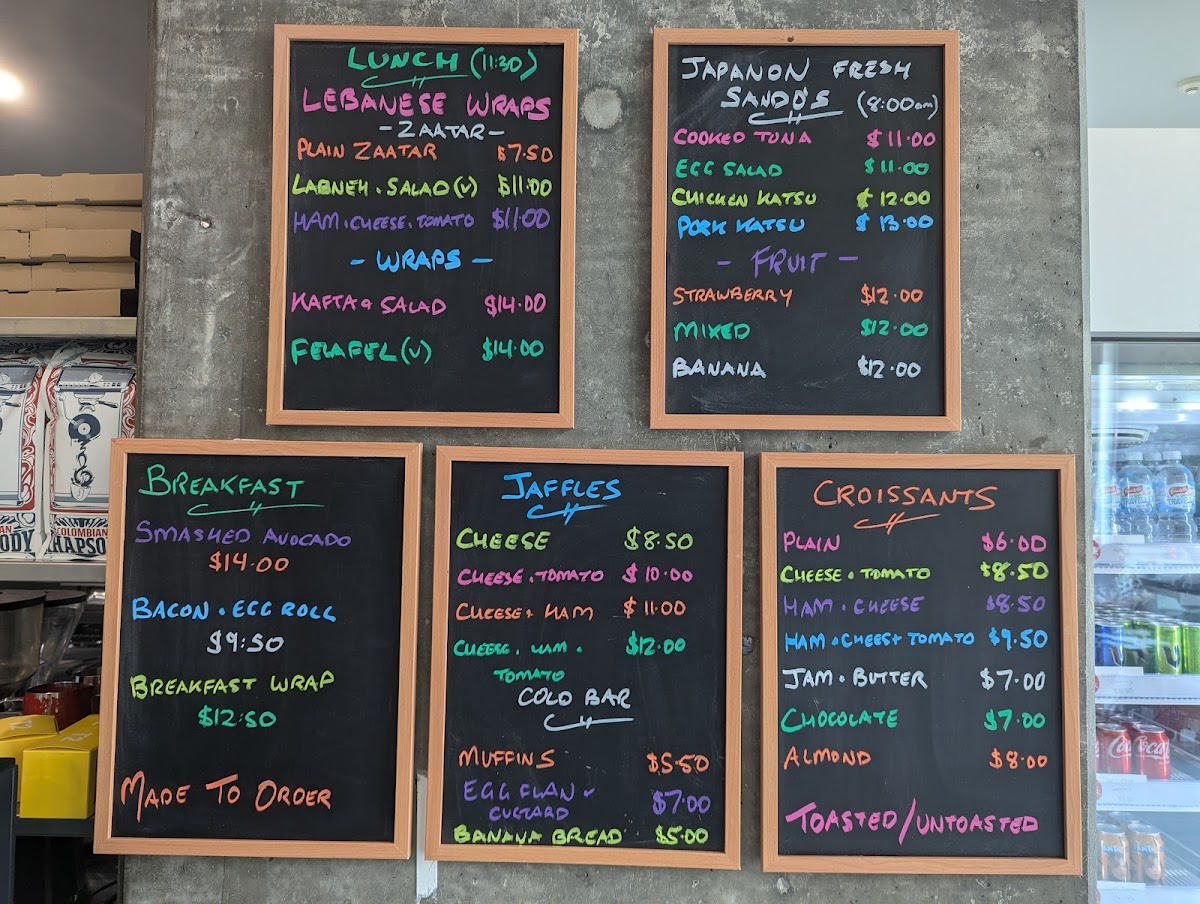 LUNCH (11:30)
LEBANESE WRAPS
- ZAATAR -
PLAIN ZAATAR $7.50
LABNEH . SALAD (V) $11.00
HAM . CHEESE . TOMATO $11.00
- WRAPS -
KAFTA & SALAD $14.00
FELAFEL (V) $14.00
JAPANON FRESH
SANDO'S (8:00am)
COOKED TUNA $11.00
EGG SALAD $11.00
CHICKEN KATSU $12.00
PORK KATSU $13.00
- FRUIT -
STRAWBERRY $12.00
MIXED $12.00
BANANA $12.00
BREAKFAST
SMASHED AVOCADO
$14.00
BACON . EGG ROLL
$9:50
BREAKFAST WRAP
$12:50
MADE TO ORDER
JAFFLES
CHEESE $8.50
CHEESE . TOMATO $10.00
CHEESE + HAM $11.00
CHEESE . HAM . $12.00
TOMATO
COLD BAR
MUFFINS $5.50
EGG FLAN
CUSTARD $7.00
BANANA BREAD $5.00
CROISSANTS
PLAIN $6.00
CHEESE . TOMATO $8.50
HAM . CHEESE $8.50
HAM . CHEES + TOMATO $9.50
JAM . BUTTER $7.00
CHOCOLATE $7.00
ALMOND $8.00
TOASTED/UNTOASTED
COLOMBIAN
RHAPSO
ODY
Coca